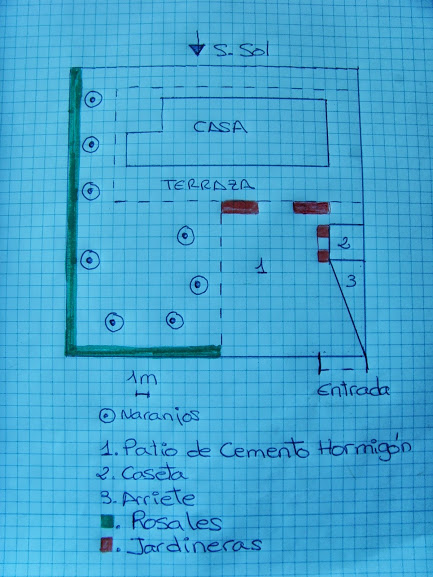 S. Sol
CASA
TERRAZA
1
2
3
1m
Entrada
Naranjos
1. Patio de Cemento Hormigón
2. Caseta
3. Arriete
. Rosales
. Jardineras